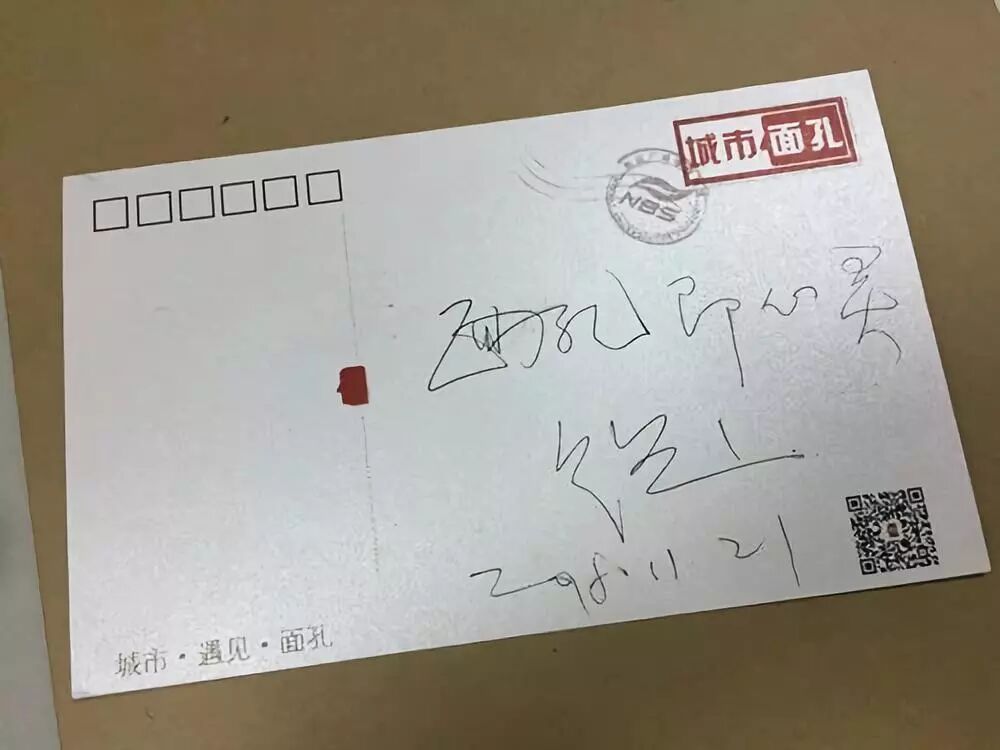 城市 面孔
NBS
面孔即心灵
2018.11.21
城市·遇见·面孔